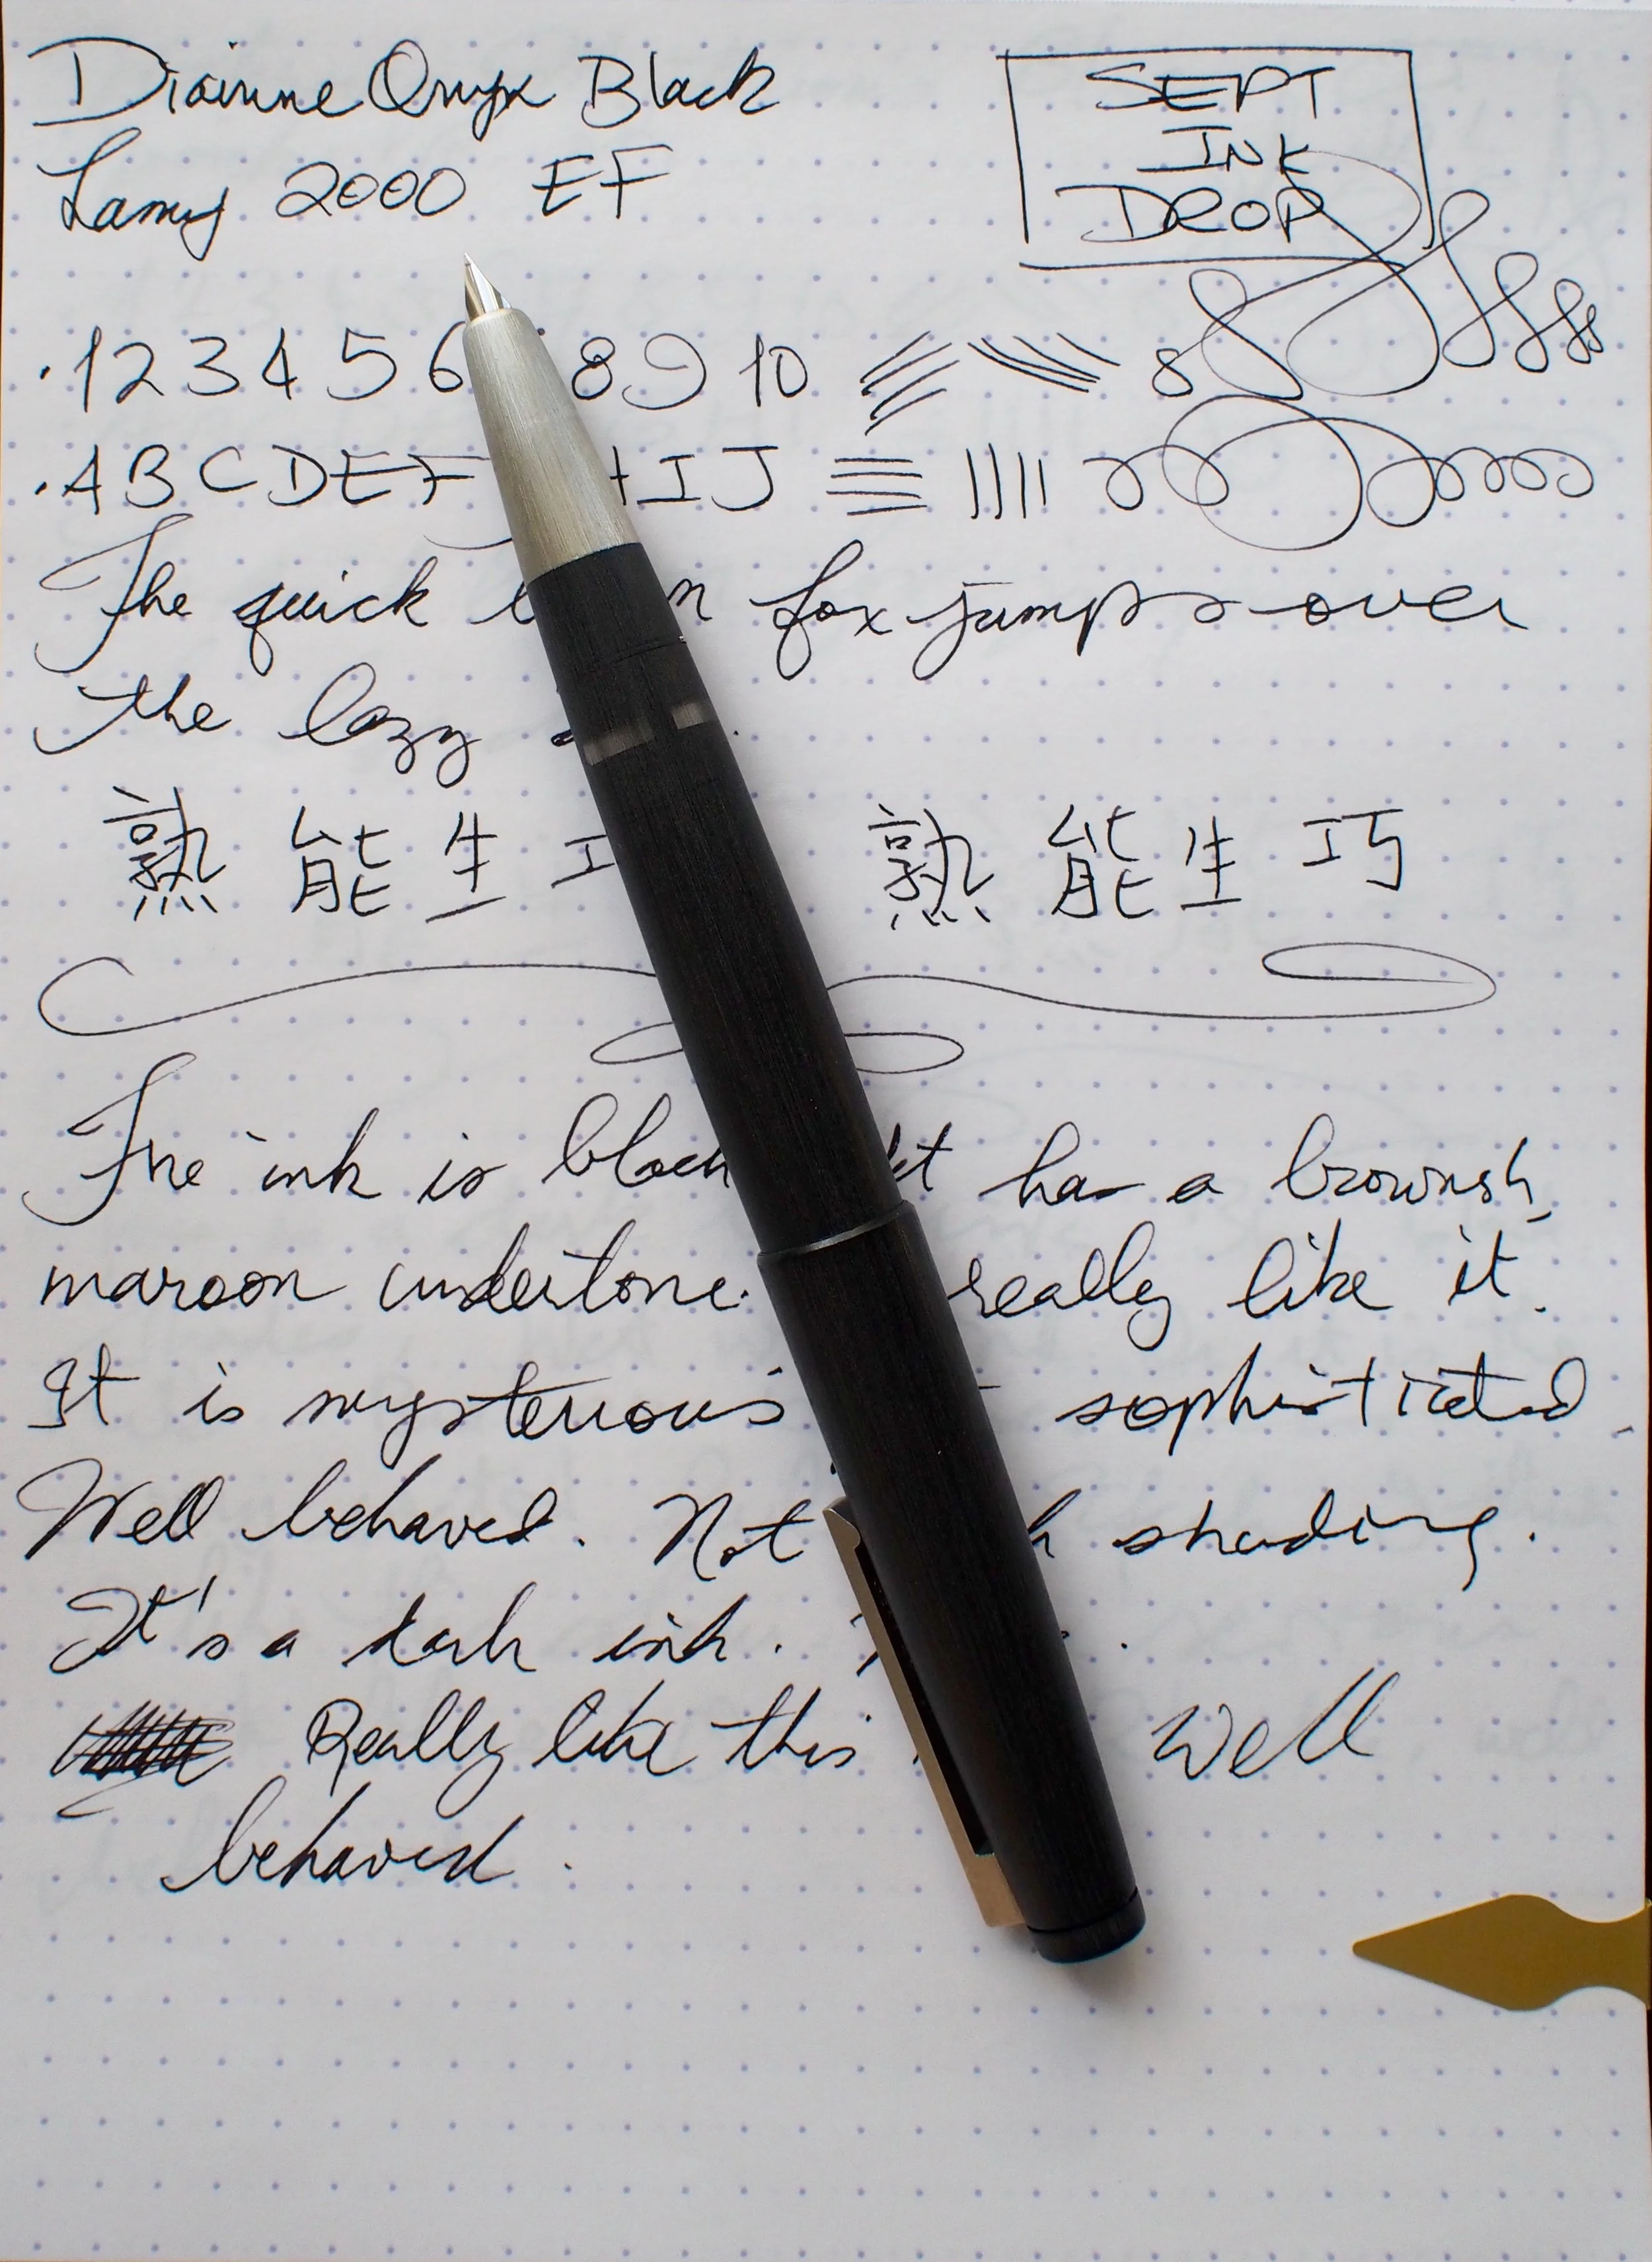 Diamine Onyx Black
Lamy 2000 EF
SEPT
INK
DROP
·1 2 3 4 5 6 8 9 10 8
·A B C D E F H I J
The quick fox jumps over
the lazy
熟能生 熟能生巧
The ink is black has a brownish,
maroon undertone. really like it.
It is mysterious sophisticated.
Well behaved. Not shading.
It's a dark ink.
Really like this Well
behaved.